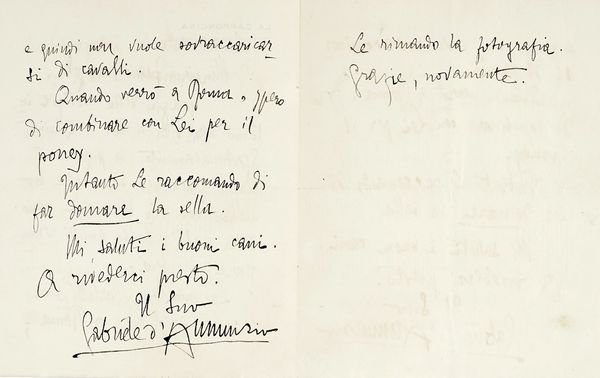 e quindi non vuole sovraccaricar
si di cavalli.
Quando verrò a Roma, spero
di combinare con Lei per il
poney.
Intanto Le raccomando di
far domare la sella.
Mi saluti i buoni cani.
A rivederci presto.
Il Suo
Gabriele d'Annunzio
Le rimando la fotografia.
Grazie, novamente.